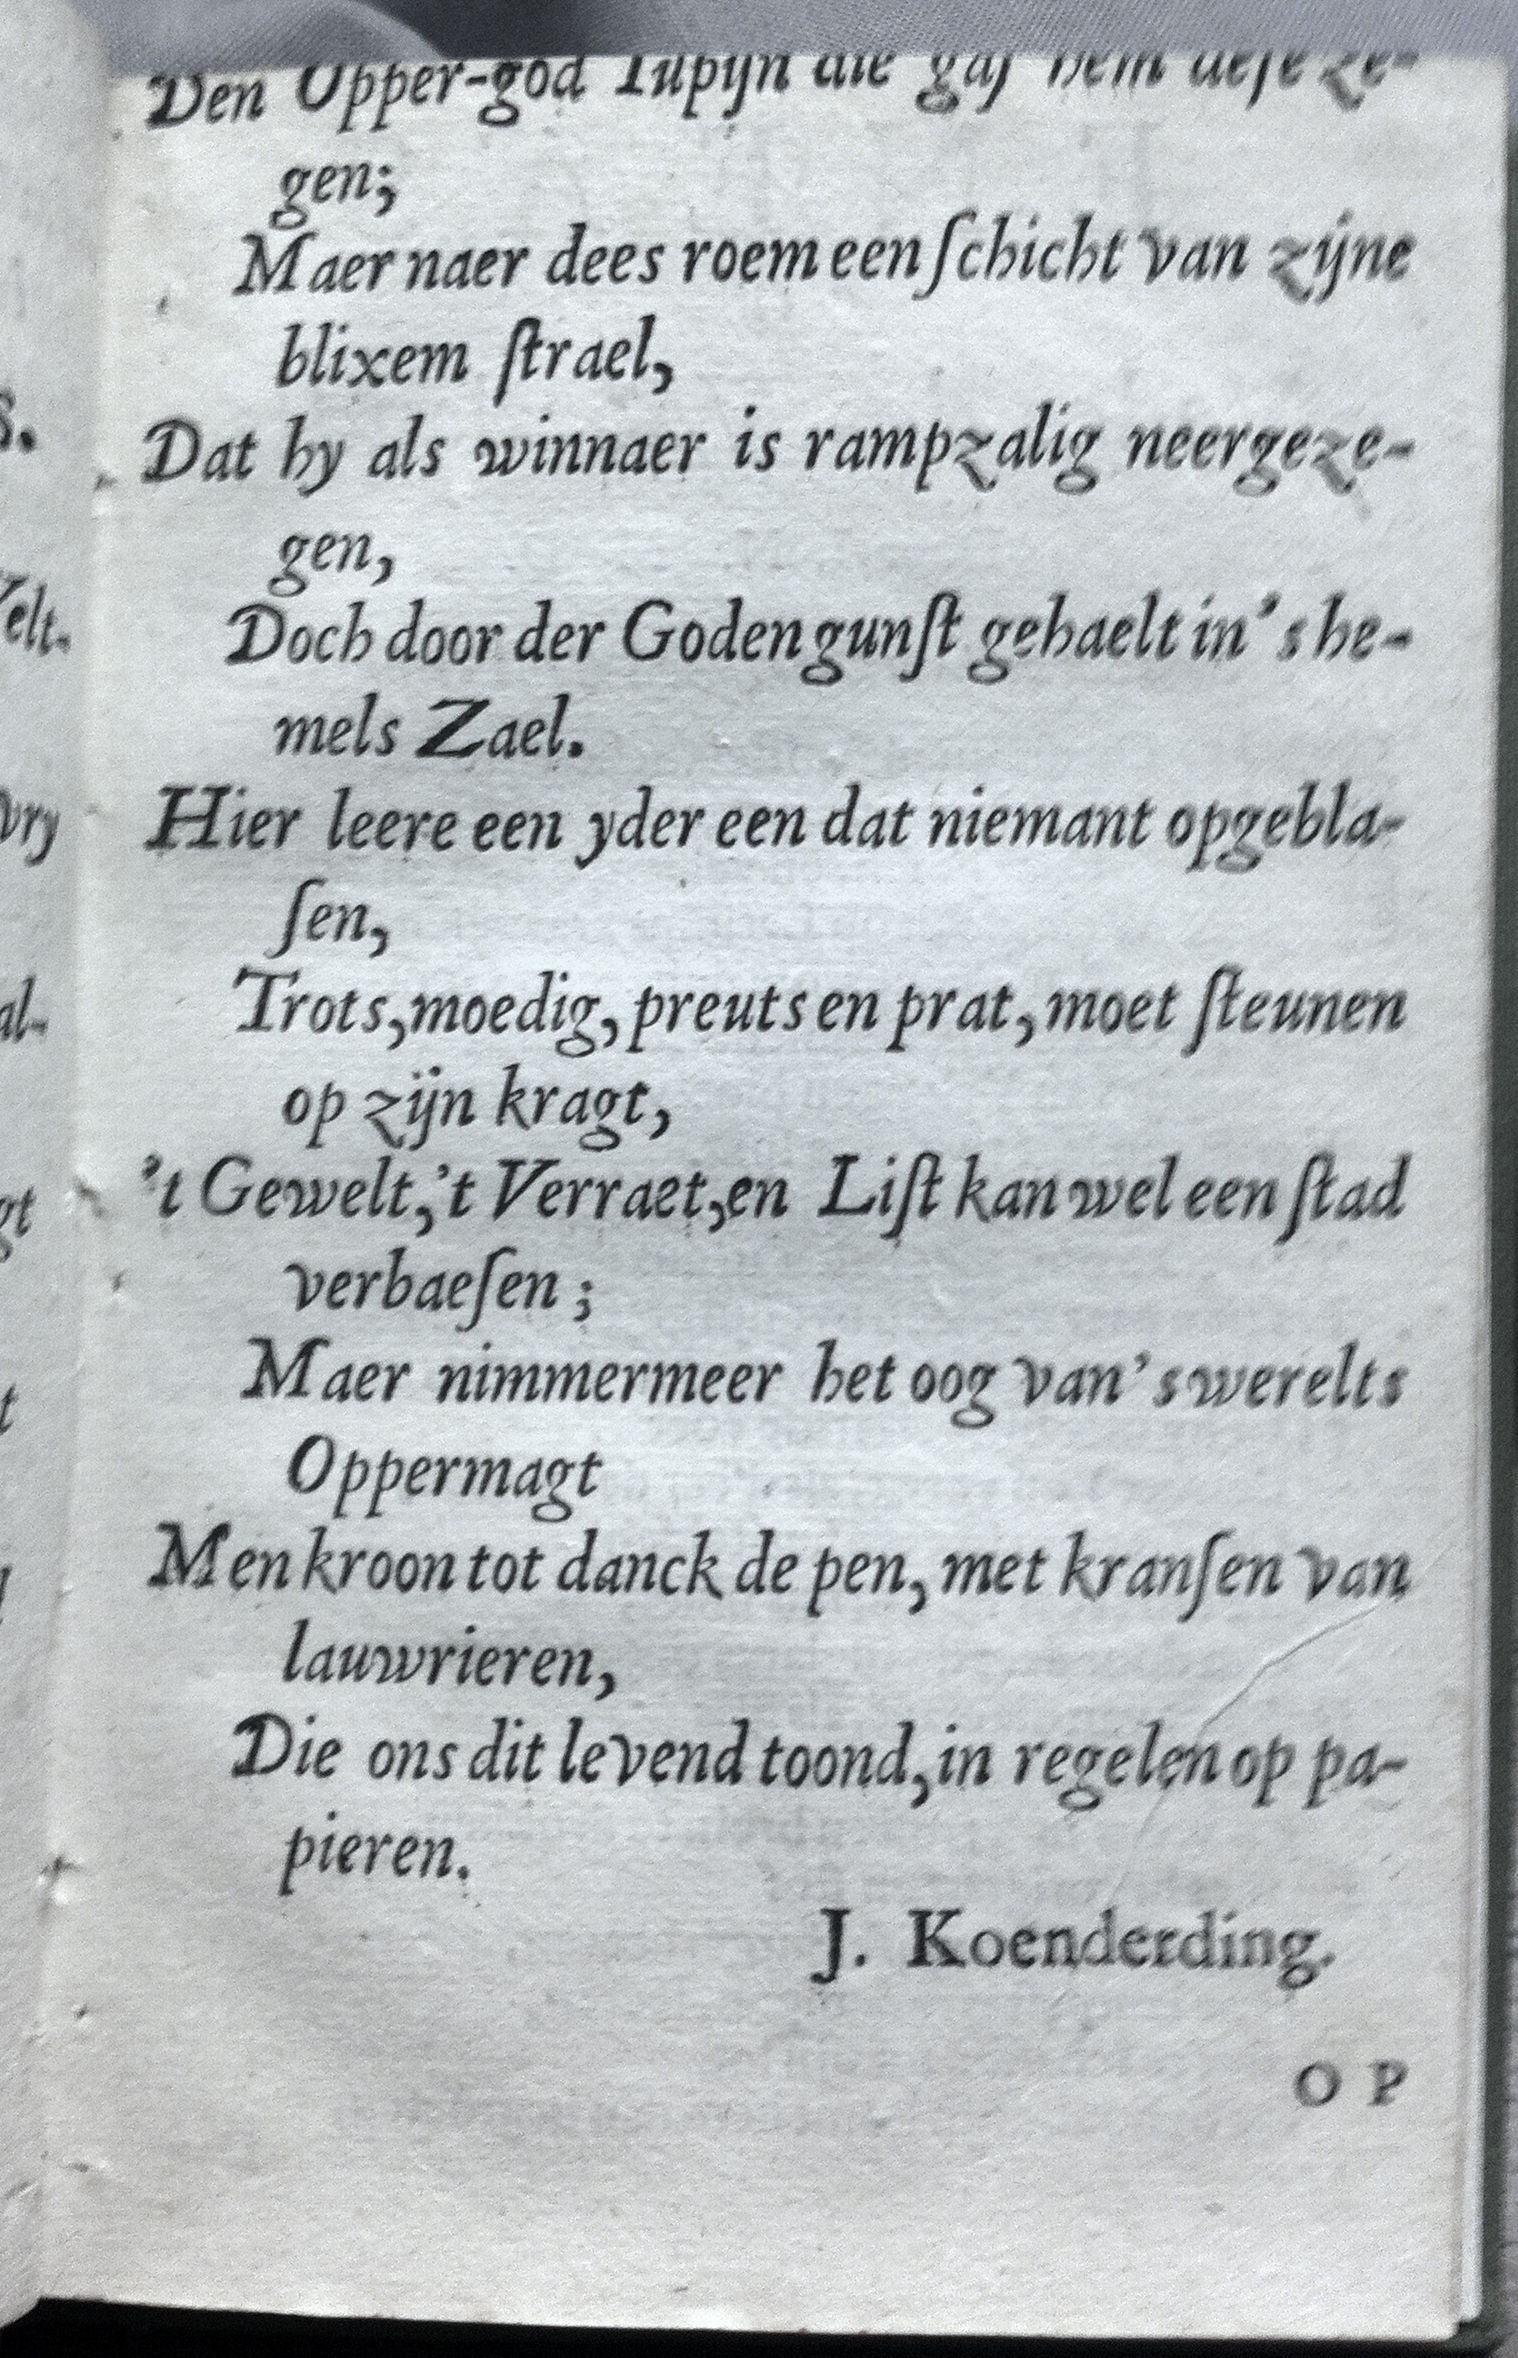 Den Opper-god Iupijn die gaf hem deſe ze-
gen;
Maer naer dees roem een ſchicht van zijne
blixem ſtrael,
Dat hy als winnaer is rampzalig neergeze-
gen,
Doch door der Goden gunſt gehaelt in's he-
mels Zael.
Hier leere een yder een dat niemant opgebla-
ſen,
Trots, moedig, preuts en prat, moet ſteunen
op zijn kragt,
't Gewelt, 't Verraet, en Liſt kan wel een ſtad
verbaeſen;
Maer nimmermeer het oog van's werelts
Oppermagt
Men kroon tot danck de pen, met kranſen van
lauwrieren,
Die ons dit levend toond, in regelen op pa-
pieren.
J. Koenderding.
O P